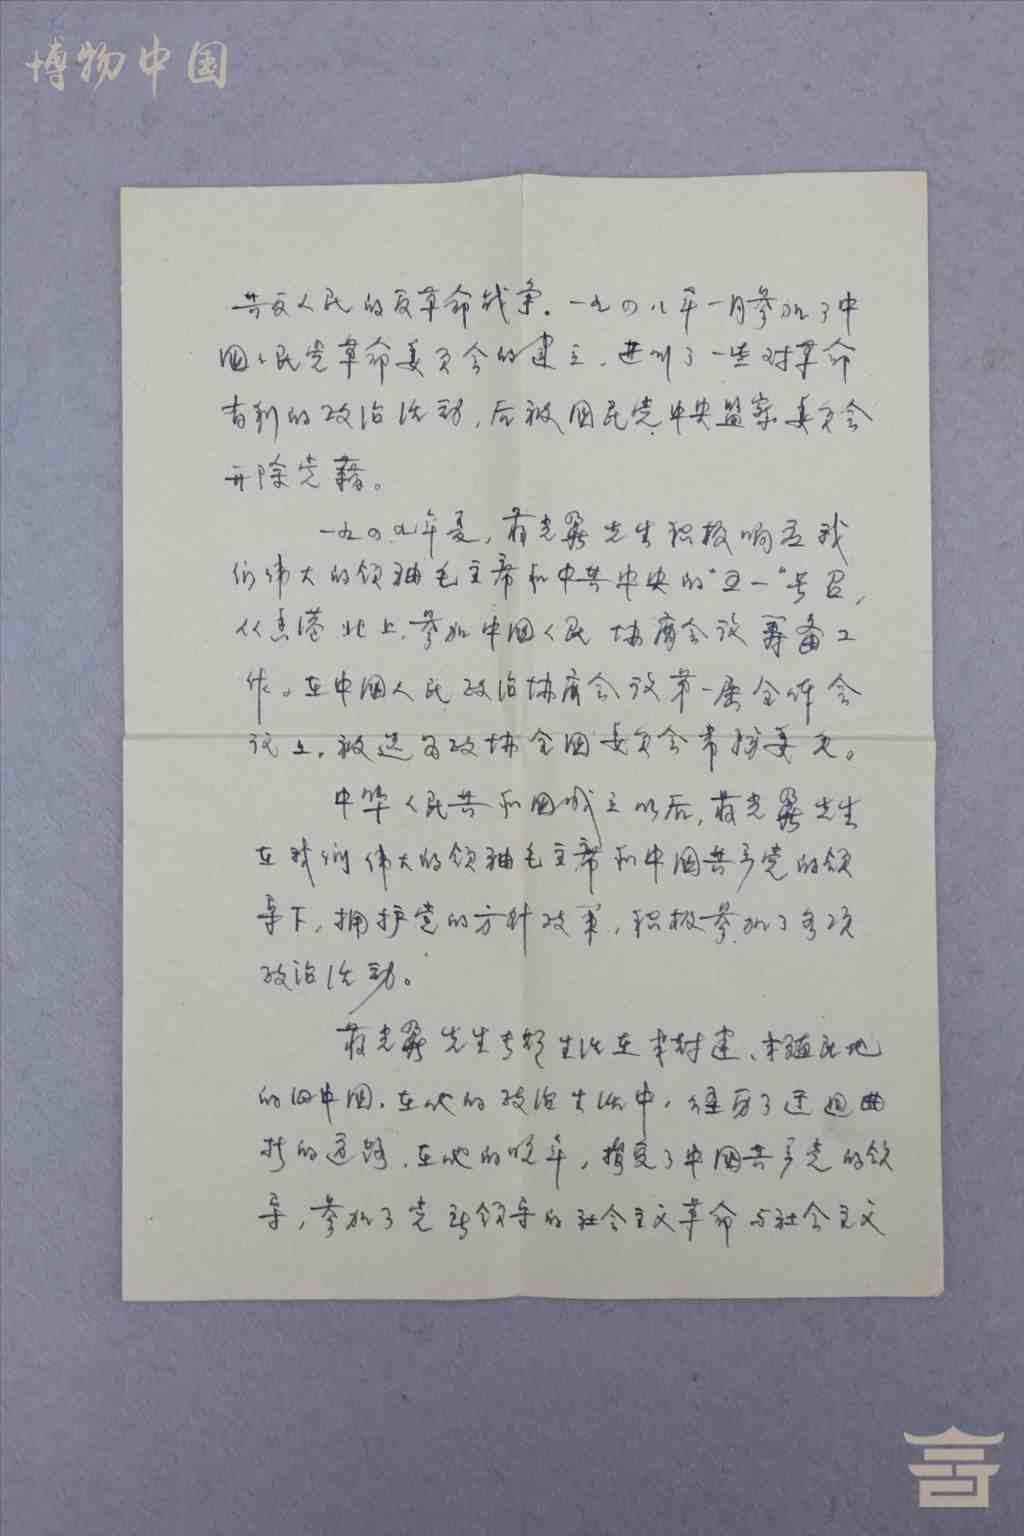 博物中国
共反人民的反革命战争。一九四八年一月参加了中
国人民党革命委员会的建立，进行了一些对革命
有利的政治活动，后被国民党中央监察委员会
开除党籍。
一九四九年夏，蒋光鼐先生积极响应我
们伟大的领袖毛主席和中共中央的“五一”号召，
从香港北上，参加中国人民协商会议筹备工
作。在中国人民政治协商会议第一届全体会
议上，被选为政协全国委员会常务委员。
中华人民共和国成立以后，蒋光鼐先生
在我们伟大的领袖毛主席和中国共产党的领
导下，拥护党的方针政策，积极参加了各项
政治活动。
蒋光鼐先生长期生活在半封建、半殖民地
的旧中国，在他的政治生活中，经历了迂迴曲
折的道路，在他的晚年，接受了中国共产党的领
导，参加了党所领导的社会主义革命与社会主义